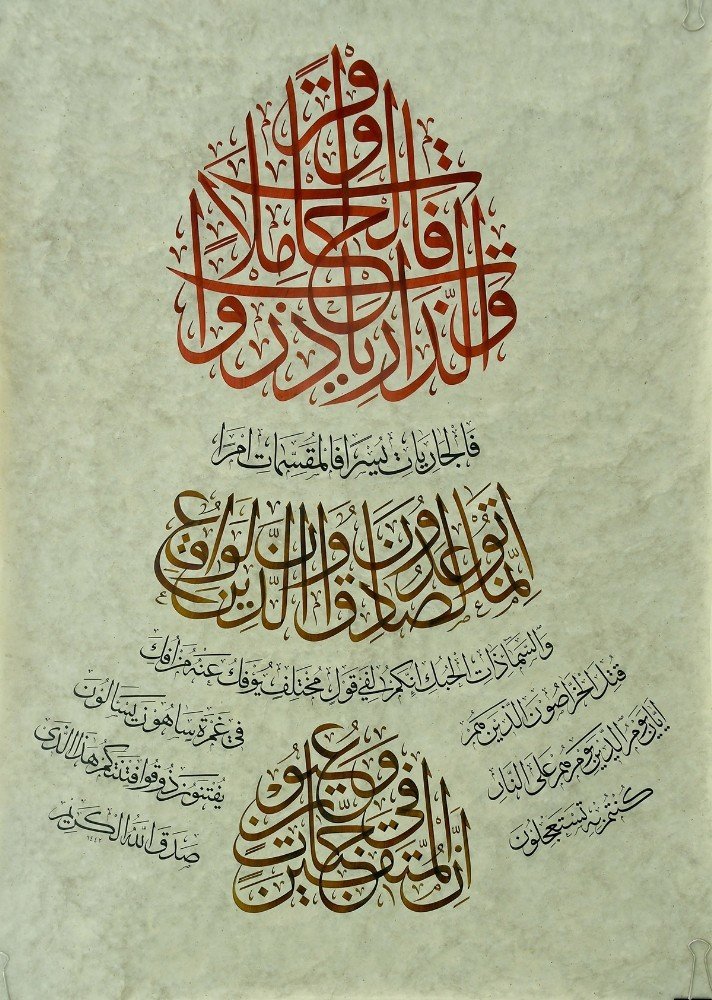 والذاريات ذروا فالحاملات وقرا
فالجاريات يسرا فالمقسمات امرا
إنما توعدون لصادق وإن الدين لواقع
والسماء ذات الحبك انكم لفي قول مختلف يؤفك عنه من افك
قتل الخراصون الذين هم
في غمرة ساهون يسألون
ايان يوم الدين يوم هم على النار
يفتنون ذوقوا فتنتكم هذا الذي
كنتم به تستعجلون
إن المتقين في جنات وعيون
صدق الله الكريم